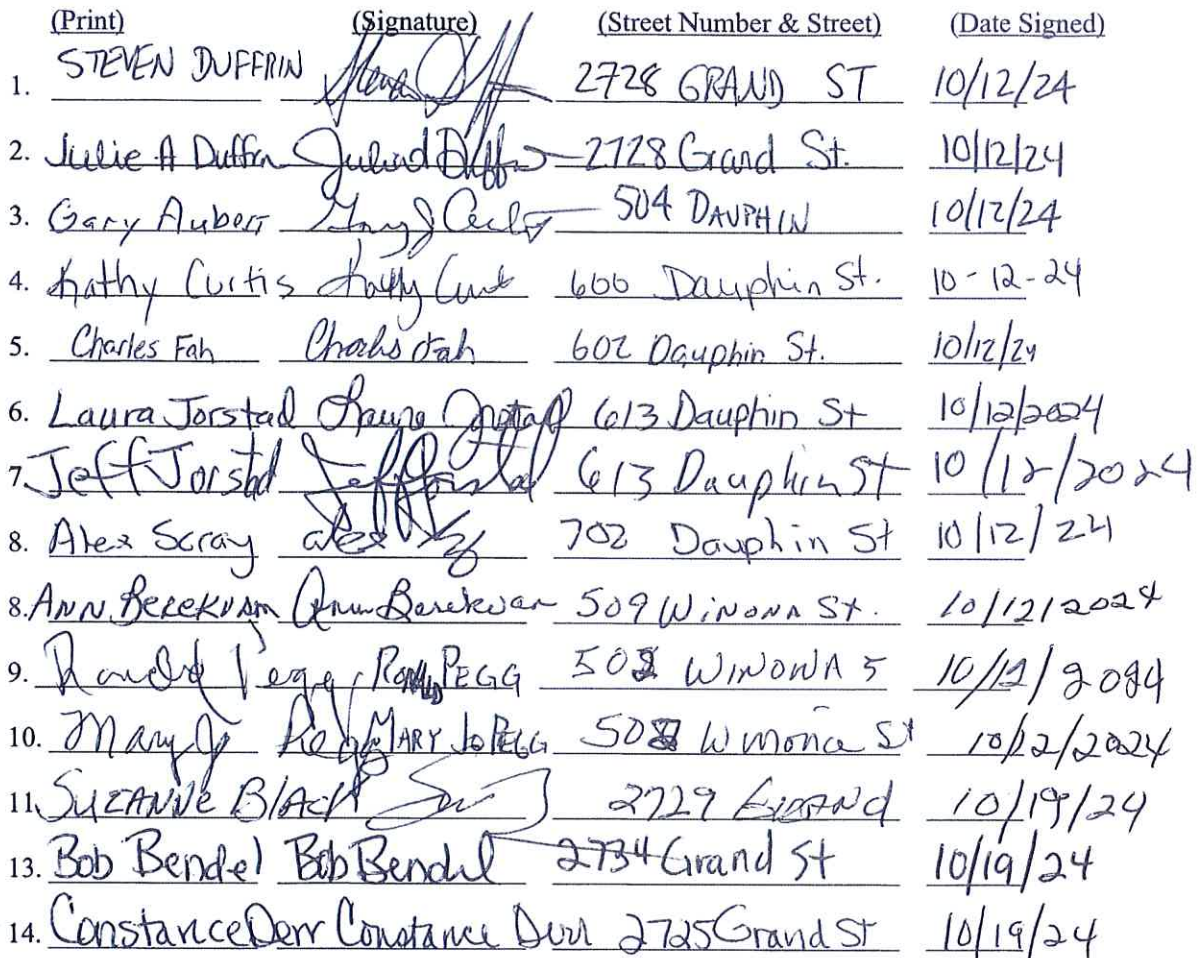 (Print) (Signature) (Street Number & Street) (Date Signed)
1. STEVEN DUFFRIN 2728 GRAND ST 10/12/24
2. Julie A Duffrin 2728 Grand St. 10/12/24
3. Gary Aubert 504 DAUPHIN 10/12/24
4. Kathy Curtis Kathy Curt 600 Dauphin St. 10-12-24
5. Charles Fah Charles Fah 602 Dauphin St. 10/12/24
6. Laura Jorstad Laura Jorstad 613 Dauphin St 10/12/2024
7. Jeff Jorstad Jeff Jorstad 613 Dauphin St 10/12/2024
8. Alex Scray Alex 702 Dauphin St 10/12/24
8. ANN BEREKVAM Ann Berekvam 509 WINONA St. 10/12/2024
9. Ronald Pegg RONALD PEGG 508 WINONA S 10/12/2024
10. Mary Jo Pegg MARY Jo PEGG 508 Winona St 10/12/2024
11. SUZANNE BLACK 2729 GRAND 10/19/24
13. Bob Bendel Bob Bendel 2734 Grand St 10/19/24
14. Constance Derr Constance Derr 2725 Grand St 10/19/24